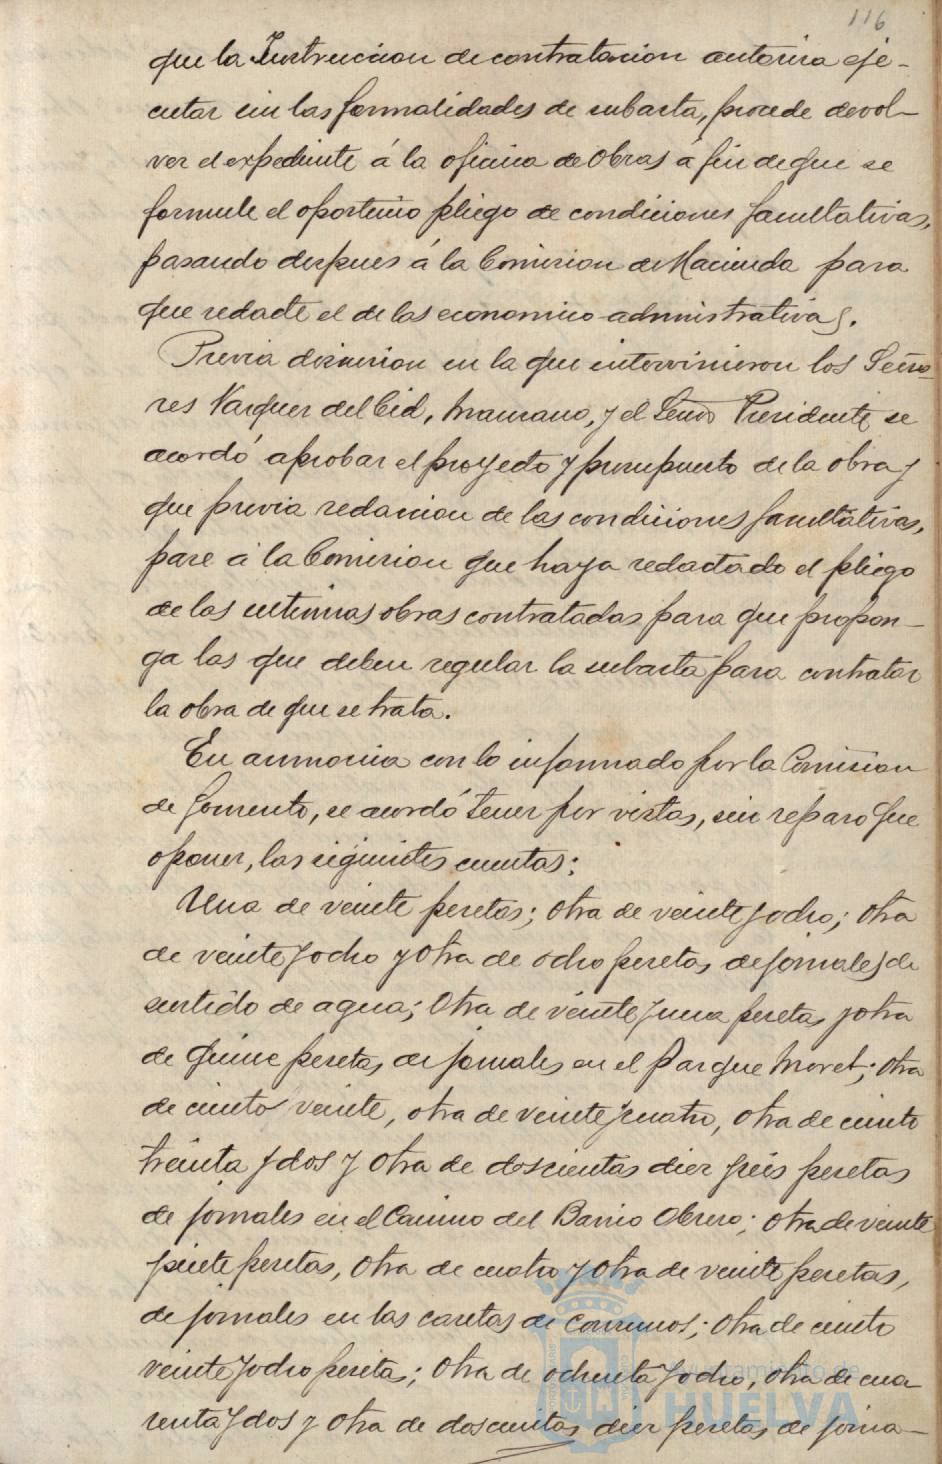 116
que la Instruccion de contratacion autoriza eje-
cutar sin las formalidades de subasta, procede devol-
ver el expediente á la oficina de Obras á fin de que se
formule el oportuno pliego de condiciones facultativas,
pasando despues á la Comision de Hacienda para
que redacte el de las economico-administrativas.
Previa discusion en la que intervinieron los Seño-
res Vazquez del Cid, Manzano, y el Señor Presidente, se
acordó aprobar el proyecto y presupuesto de la obra y
que previa redaccion de las condiciones facultativas,
pase á la Comision que haya redactado el pliego
de las ultimas obras contratadas para que propon-
ga las que deben regular la subasta para contratar
la obra de que se trata.
En armonia con lo informado por la Comision
de Fomento, se acordó tener por vistas, sin reparo que
oponer, las siguientes cuentas:
Una de veinte pesetas; otra de veinte y ocho; otra
de veinte y ocho y otra de ocho pesetas de jornales de
surtido de agua; Otra de veinte y una pesetas y otra
de quince pesetas de jornales en el Parque Moret; otra
de ciento veinte, otra de veinte y cuatro, otra de ciento
treinta y dos y otra de doscientas diez y seis pesetas
de jornales en el Camino del Barrio Obrero; otra de veinte
y siete pesetas, otra de cuatro y otra de veinte pesetas,
de jornales en las casetas de consumos; otra de ciento
veinte y ocho pesetas; otra de ochenta y ocho, otra de cua-
renta y dos y otra de doscientas diez pesetas de jorna-
Ayuntamiento de
HUELVA